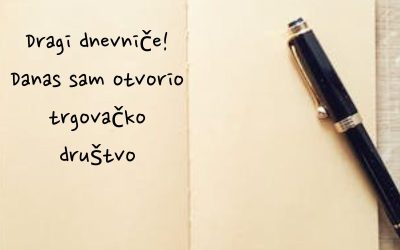 Dragi dnevniče!
Danas sam otvorio
trgovačko
društvo